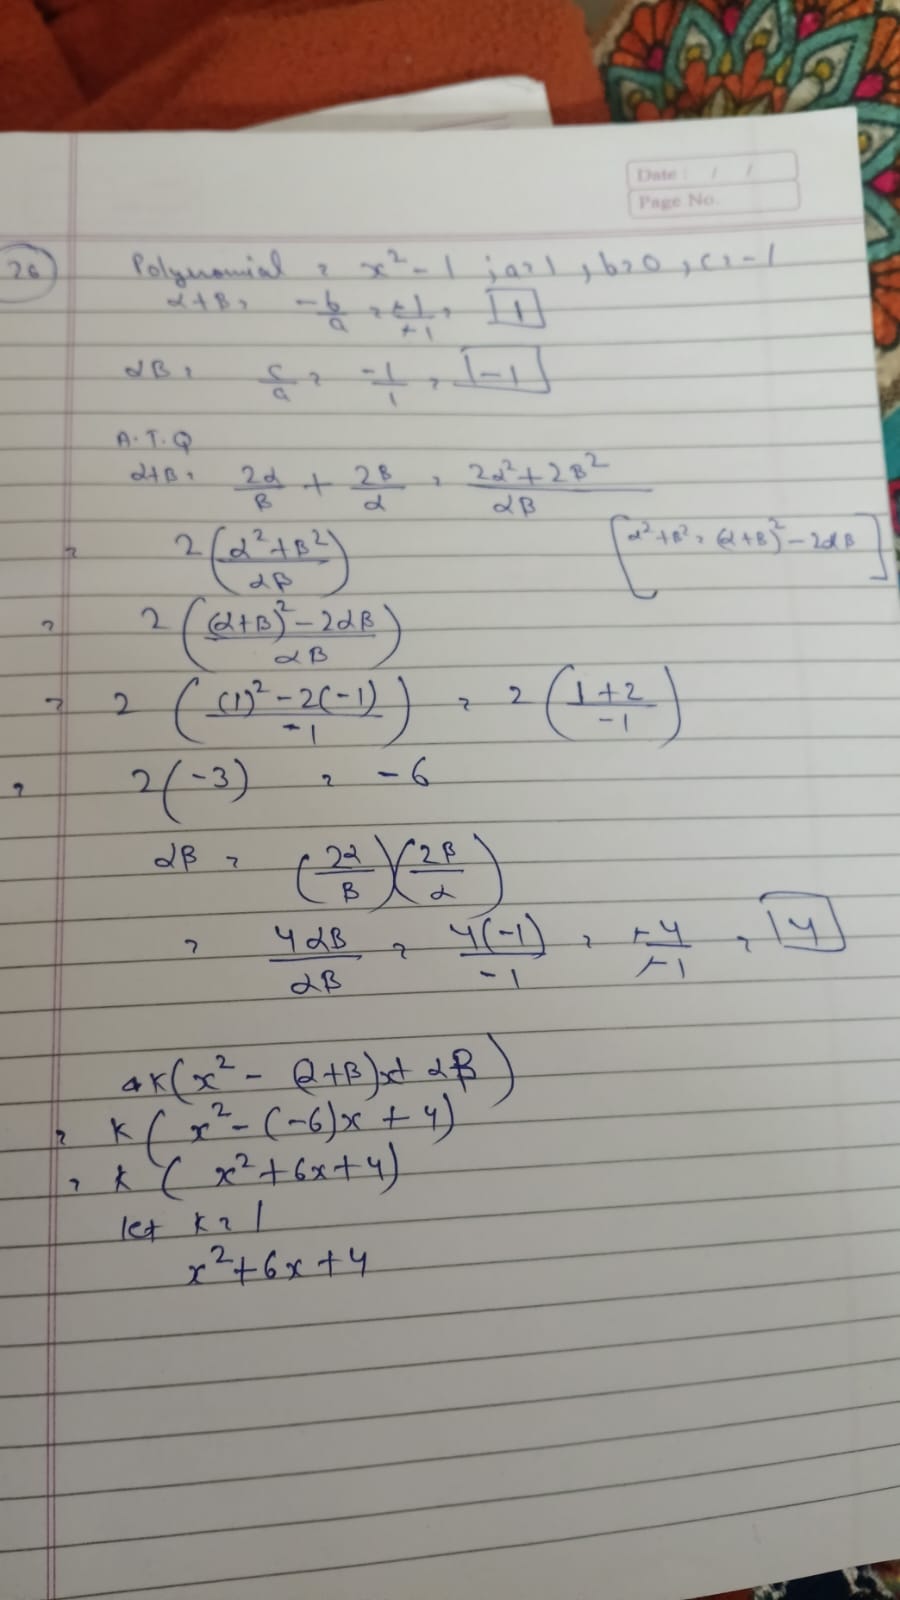 Date : / /
Page No.
26 Polynomial = x² - 1 ; a=1, b=0, c=-1
α+β = -b/a = -1/-1 = 1
αβ = c/a = -1/1 = -1
A.T.Q
α+β = 2α/β + 2β/α = (2α²+2β²)/αβ
= 2((α²+β²)/αβ) [α²+β² = (α+β)² - 2αβ]
= 2(((α+β)² - 2αβ)/αβ)
= 2 (((1)² - 2(-1))/-1) = 2((1+2)/-1)
= 2(-3) = -6
αβ = (2α/β)(2β/α)
= 4αβ/αβ = 4(-1)/-1 = -4/-1 = 4
K(x² - (α+β)x + αβ)
= K(x² - (-6)x + 4)
= K(x² + 6x + 4)
let K = 1
x² + 6x + 4